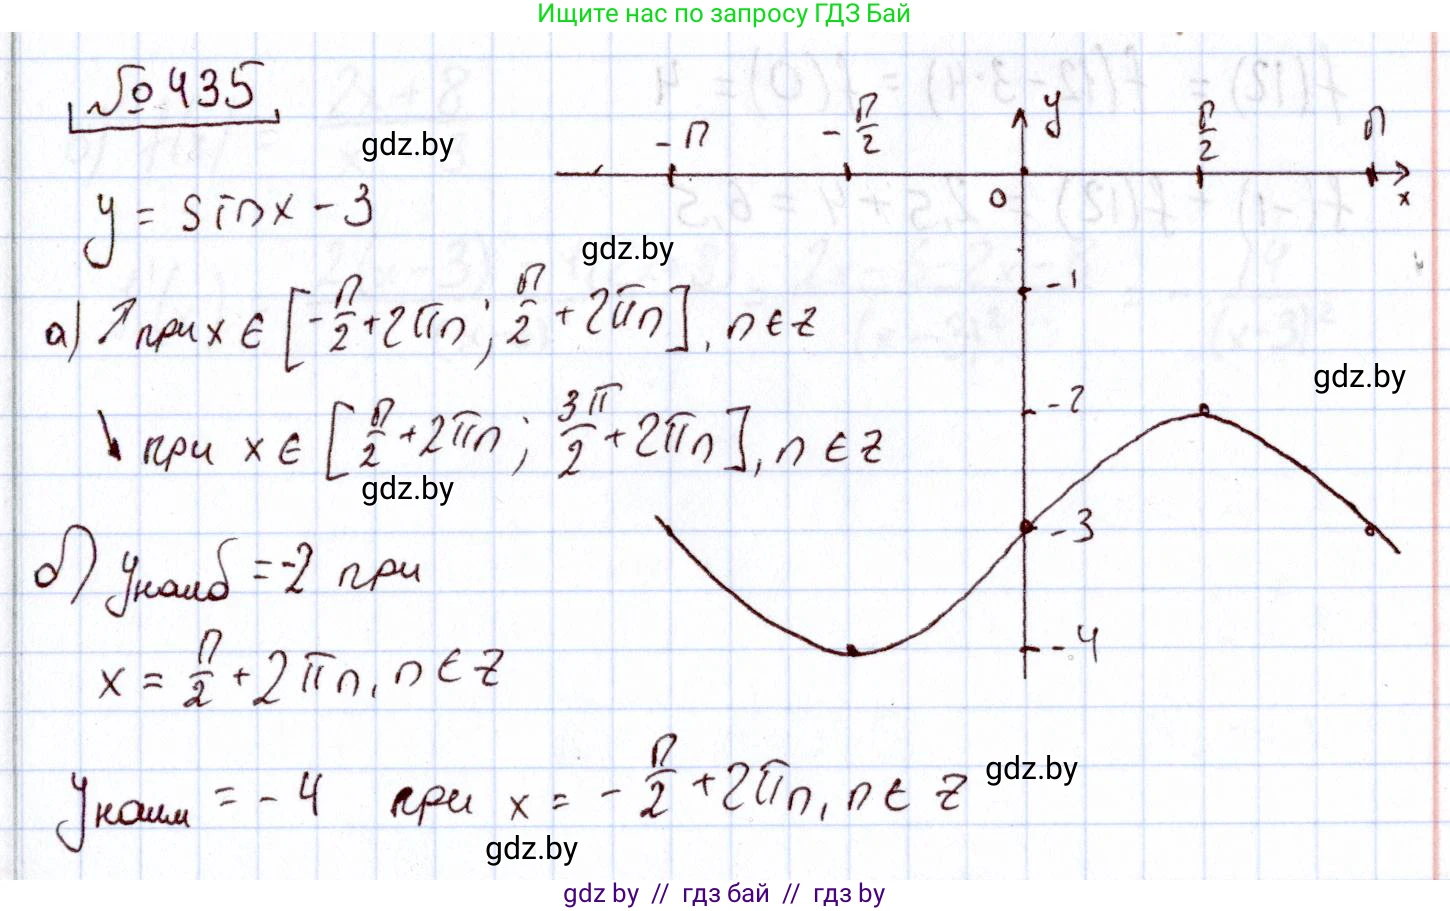 Ищите нас по запросу ГДЗ Бай
№435
gdz.by
y = sin x - 3
gdz.by
а) ↗ при x ∈ [-π/2 + 2πn; π/2 + 2πn], n ∈ Z
↘ при x ∈ [π/2 + 2πn; 3π/2 + 2πn], n ∈ Z
gdz.by
б) y наиб = -2 при
x = π/2 + 2πn, n ∈ Z
y наим = -4 при x = -π/2 + 2πn, n ∈ Z
gdz.by
gdz.by
-π -π/2 y π/2 π
0 x
-1
gdz.by
-2
-3
-4
gdz.by // гдз бай // гдз by